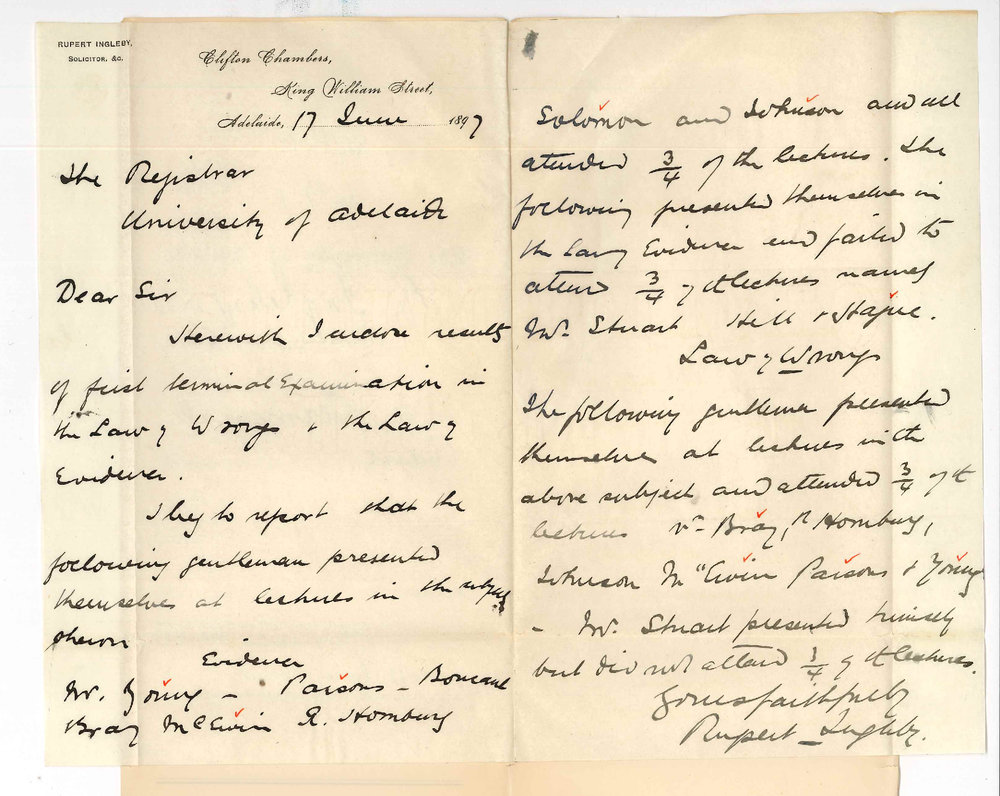 RUPERT INGLEBY,
SOLICITOR, &C.
Clifton Chambers,
King William Street,
Adelaide, 17 June 1897
The Registrar
University of Adelaide
Dear Sir
Herewith I enclose results
of first terminal Examination in
the Law of Wrongs & the Law of
Evidence.
I beg to report that the
following gentleman presented
themselves at lectures in the subject
shewn
Evidence
Mr. Young – Parsons – Boucaut
Bray McEwin R. Homburg
Solomon and Johnson and all
attended 3/4 of the lectures. The
following presented themselves in
the Law of Evidence and failed to
attend 3/4 of the lectures namely
Mr. Stuart Hill & Hague.
Law of Wrongs
The following gentlemen presented
themselves at lectures in the
above subject and attended 3/4 of the
lectures Bray, R Homburg,
Johnson McEwin Parsons & Young
– Mr. Stuart presented himself
but did not attend 3/4 of the lectures.
Yours faithfully
Rupert Ingleby.